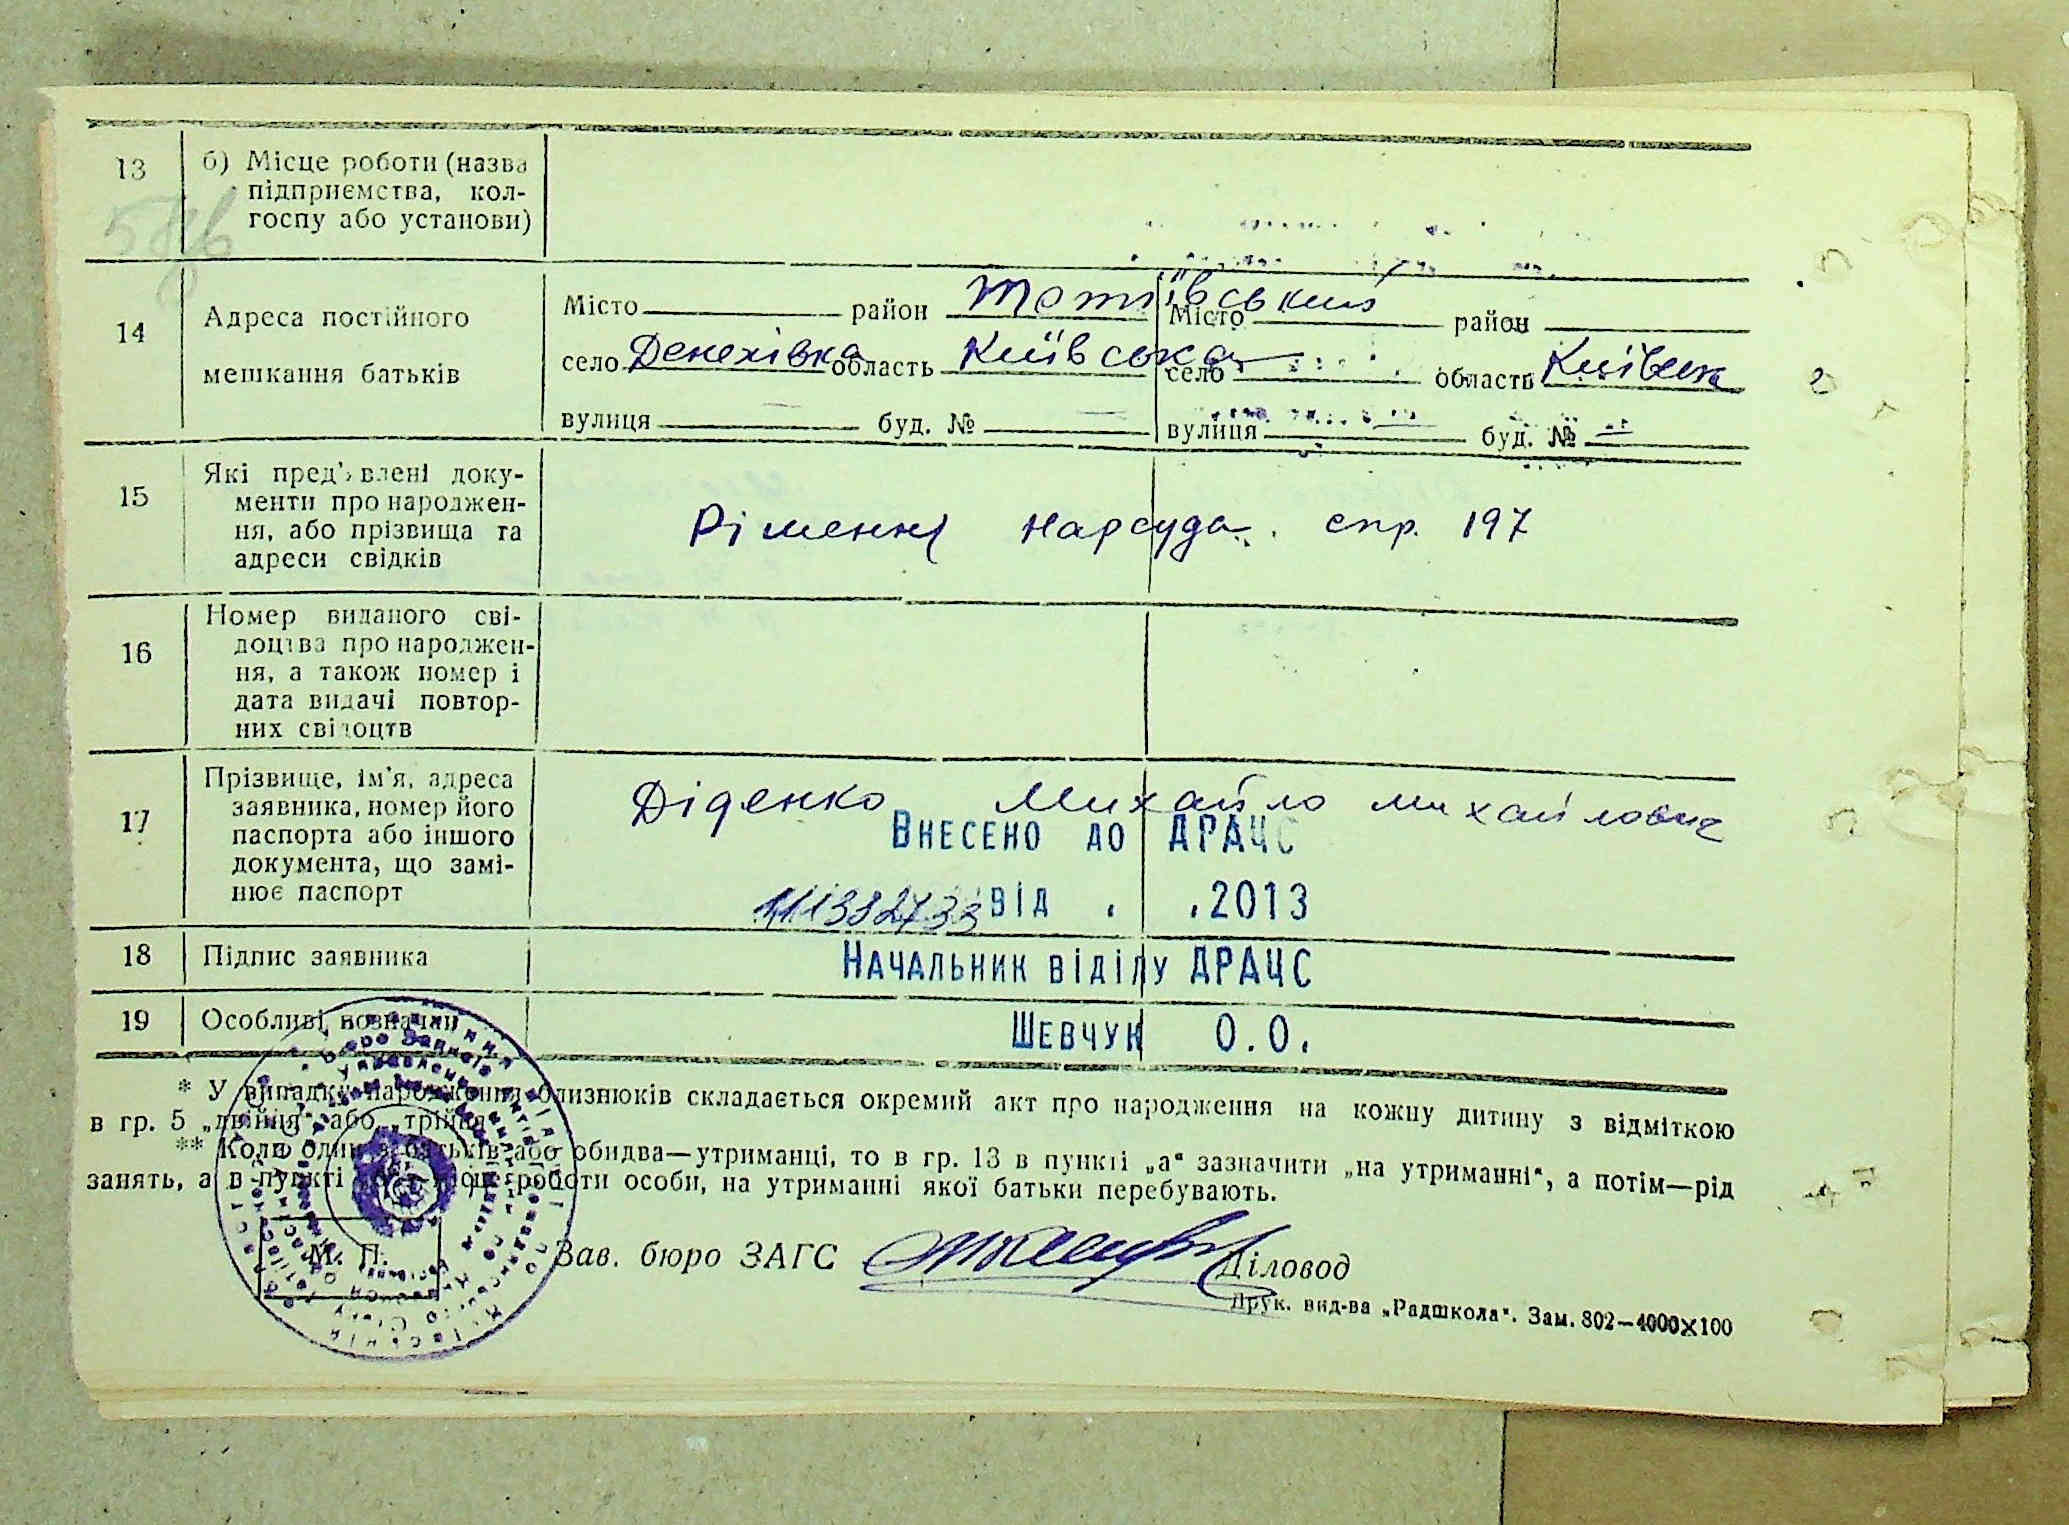 13 б) Місце роботи (назва
підприємства, кол-
госпу або установи)
14 Адреса постійного
мешкання батьків
Місто район Тетіївський Місто район
село Денехівка область Київська село область Київська
вулиця — буд. № — вулиця — буд. № —
15 Які пред'явлені доку-
менти про народжен-
ня, або прізвища та
адреси свідків
Ріменні нарсуда. спр. 197
16 Номер виданого сві-
доцтва про народжен-
ня, а також номер і
дата видачі повтор-
них свідоцтв
17 Прізвище, ім'я, адреса
заявника, номер його
паспорта або іншого
документа, що замі-
нює паспорт
Діденко Михайло Михайлович
Внесено до ДРАЦС
від . .2013
18 Підпис заявника
Начальник відділу ДРАЦС
19 Особливі позначки
Шевчук О.О.
* У випадку народження близнюків складається окремий акт про народження на кожну дитину з відміткою
в гр. 5 „двійня“ або „трійня“
** Коли один з батьків або обидва—утриманці, то в гр. 13 в пункті „а“ зазначити „на утриманні“, а потім—рід
занять, а в пункті місце роботи особи, на утриманні якої батьки перебувають.
М. П.
Зав. бюро ЗАГС Діловод
Друк. вид-ва „Радшкола“. Зам. 802—4000×100